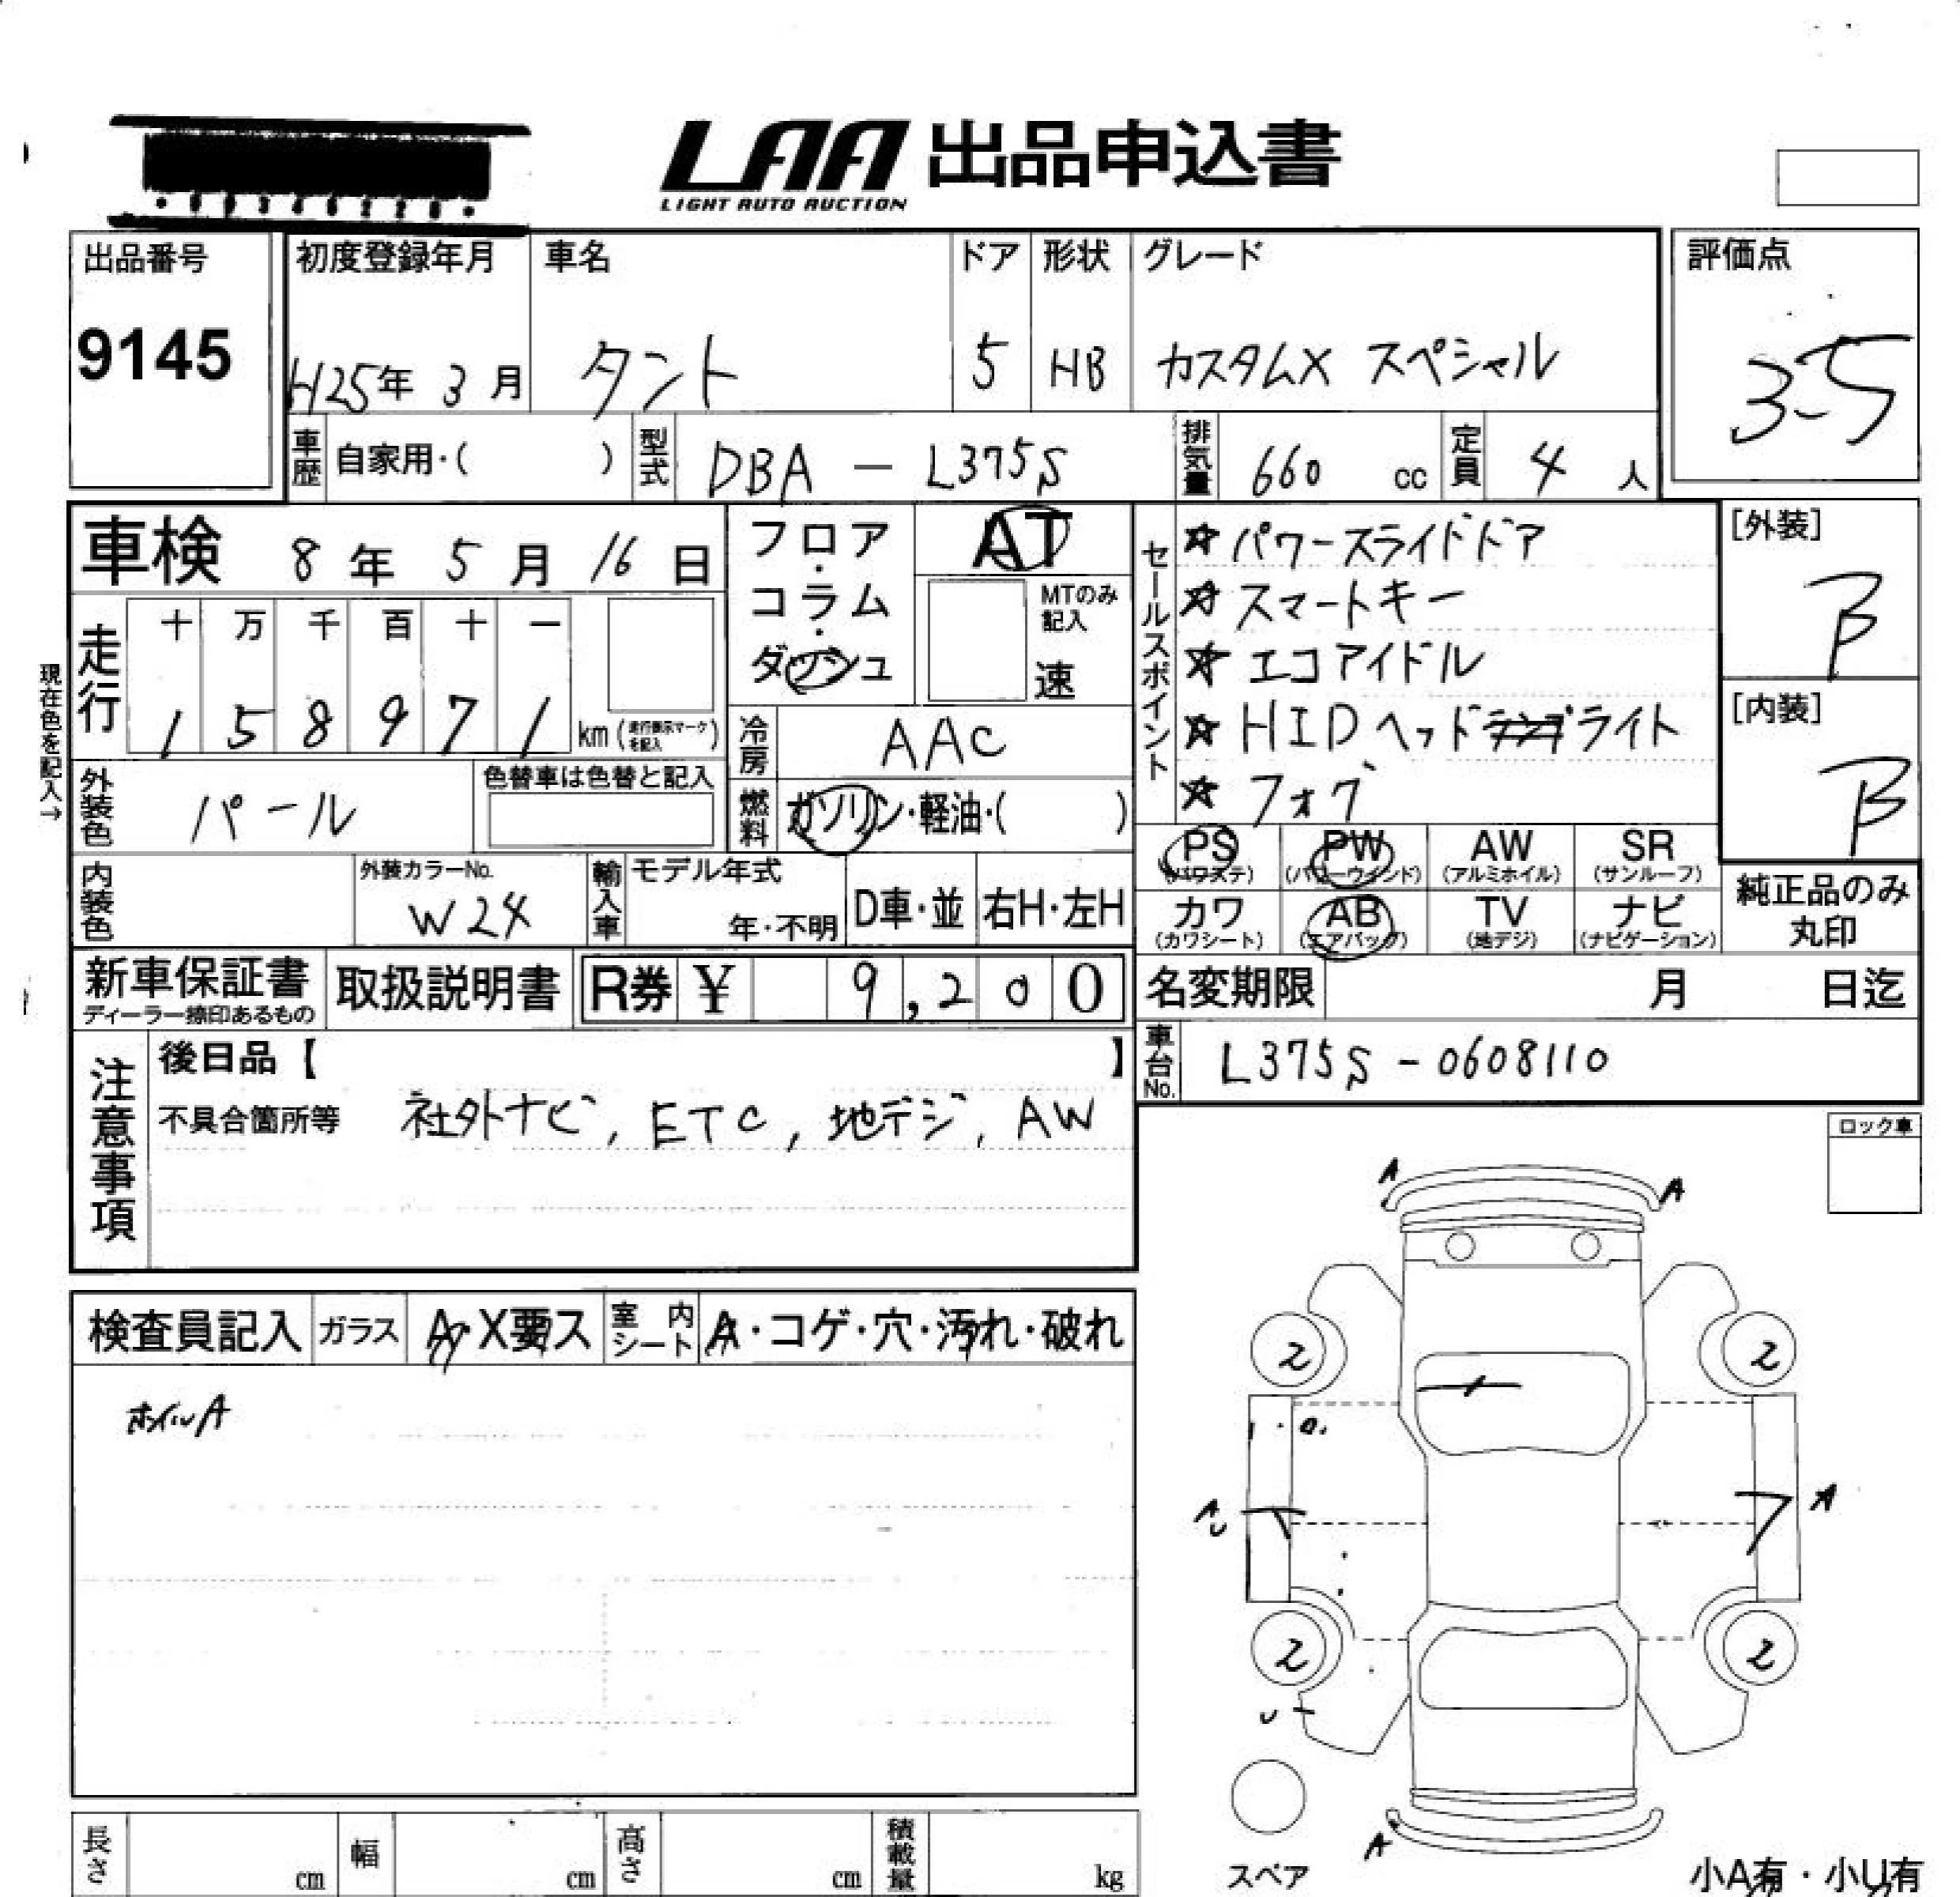 LAA 出品申込書
LIGHT AUTO AUCTION
出品番号
9145
初度登録年月
H25年 3月
車名
タント
ドア
5
形状
HB
グレード
カスタムX スペシャル
評価点
3.5
車歴 自家用・( )
型式 DBA - L375S
排気量 660 cc
定員 4 人
車検 8年 5月 16日
フロア・コラム・ダッシュ
AT
MTのみ記入
速
セールスポイント
☆ パワースライドドア
☆ スマートキー
☆ エコアイドル
☆ HIDヘッドライト
☆ フォグ
[外装]
B
[内装]
B
現在色を記入→
走行
十 万 千 百 十 一
1 5 8 9 7 1 km (走行表示マークを記入)
冷房 AAC
外装色 パール
色替車は色替と記入
燃料 ガソリン・軽油・( )
内装色
外装カラーNo.
W24
輸入車
モデル年式
年・不明
D車・並
右H・左H
PS (パワステ)
PW (パワーウインド)
AW (アルミホイル)
SR (サンルーフ)
カワ (カワシート)
AB (エアバッグ)
TV (地デジ)
ナビ (ナビゲーション)
純正品のみ丸印
新車保証書
ディーラー捺印あるもの
取扱説明書
R券 ¥ 9,200
名変期限 月 日迄
車台No. L375S - 0608110
注意事項
後日品【 】
不具合箇所等 社外ナビ, ETC, 地デジ, AW
ロック車
検査員記入
ガラス A・X要ス
室内シート A・コゲ・穴・汚れ・破れ
ホイルA
A
A
2
2
A
2
2
A
スペア
小A有・小U有
長さ cm
幅 cm
高さ cm
積載量 kg